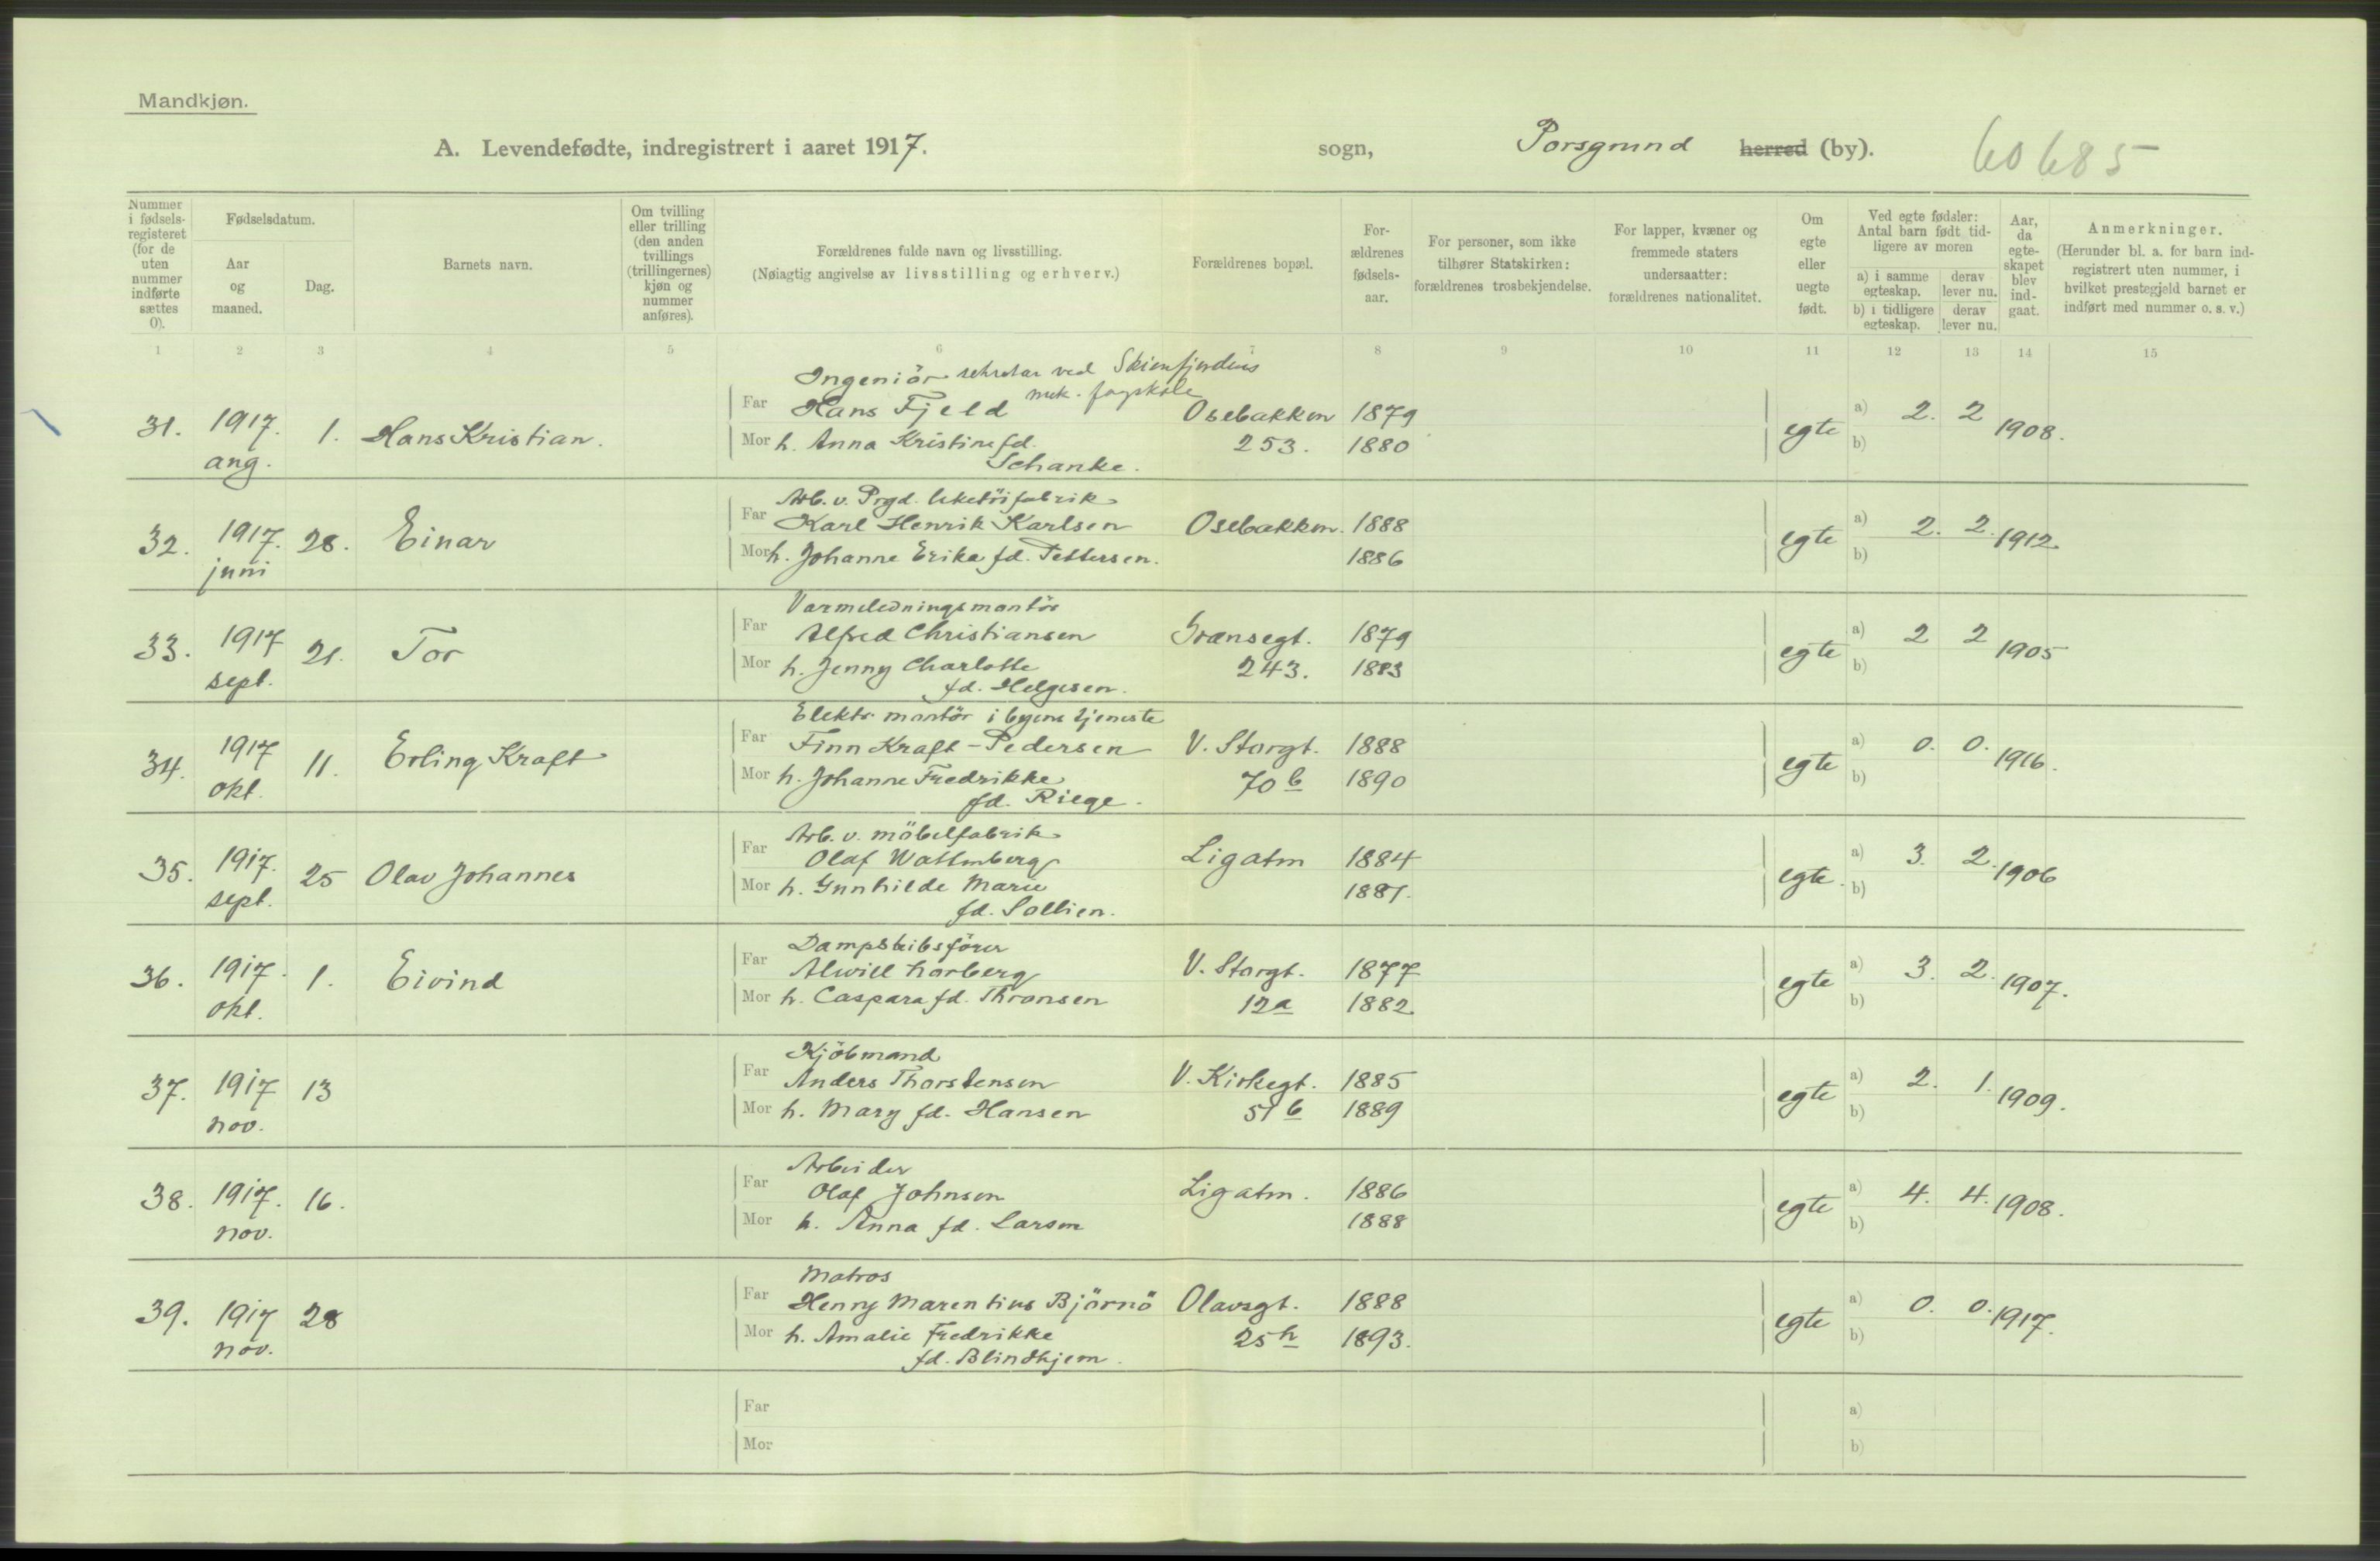 Mandkjøn.
A. Levendefødte, indregistrert i aaret 1917. sogn, Porsgrund herred (by). 60685
Nummer i fødsels-registeret (for de uten nummer indførte sættes 0).
Fødselsdatum.
Aar og maaned.
Dag.
Barnets navn.
Om tvilling eller trilling (den anden tvillings (trillingernes) kjøn og nummer anføres).
Forældrenes fulde navn og livsstilling.
(Nøiagtig angivelse av livsstilling og erhverv.)
Forældrenes bopæl.
For-ældrenes fødsels-aar.
For personer, som ikke tilhører Statskirken: forældrenes trosbekjendelse.
For lapper, kvæner og fremmede staters undersaatter: forældrenes nationalitet.
Om egte eller uegte født.
Ved egte fødsler: Antal barn født tid-ligere av moren
a) i samme egteskap. derav lever nu.
b) i tidligere egteskap. derav lever nu.
Aar, da egte-skapet blev ind-gaat.
Anmerkninger.
(Herunder bl. a. for barn ind-registrert uten nummer, i hvilket prestegjeld barnet er indført med nummer o. s. v.)
1 2 3 4 5 6 7 8 9 10 11 12 13 14 15
Ingeniör sekretær ved Skiensfjordens
mek. fagskole
31. 1917. 1. Hans Kristian. Far Hans Fjeld Osebakken 1879 egte a) 2. 2 1908.
aug. Mor h. Anna Kristine fd. 253. 1880 b)
Schanke.
Arb. v. Prgd. leketöifabrik
32. 1917. 28. Einar Far Karl Henrik Karlsen Osebakken. 1888 egte a) 2. 2. 1912.
juni Mor h. Johanne Erika fd. Pettersen. 1886 b)
Varmeledningsmontör
33. 1917 21. Tor Far Alfred Christiansen Grænsegt. 1879 egte a) 2 2 1905
sept. Mor h. Jenny Charlotte 243. 1883 b)
fd. Helgesen.
Elektr. montör i byens tjeneste
34. 1917 11. Erling Kraft Far Finn Kraft-Pedersen V. Storgt. 1888 egte a) 0. 0. 1916.
okt. Mor h. Johanne Fredrikke 70 b 1890 b)
fd. Riege.
Arb. v. möbelfabrik
35. 1917. 25 Olav Johannes Far Olaf Wattenberg Ligatm 1884 egte. a) 3. 2. 1906
sept. Mor h. Gunhilde Marie 1881. b)
fd. Sollien.
Dampskibsförer
36. 1917. 1. Eivind Far Alwill Norberg V. Storgt. 1877 egte a) 3. 2. 1907.
okt. Mor h. Caspara fd. Thronsen 12a 1882. b)
Kjöbmand
37. 1917 13 Far Anders Thorstensen V. Kirkegt. 1885 egte a) 2. 1. 1909.
nov. Mor h. Mary fd. Hansen 51 b 1889 b)
Arbeider
38. 1917. 16. Far Olaf Johnsen Ligatm. 1886 egte a) 4. 4. 1908.
nov. Mor h. Anna fd. Larsen 1888 b)
Matros
39. 1917 28 Far Henry Marentius Björnö Olavsgt. 1888 egte a) 0. 0. 1917.
nov. Mor h. Amalie Fredrikke 25 h 1893. b)
fd. Blindhjem.
Far a)
Mor b)